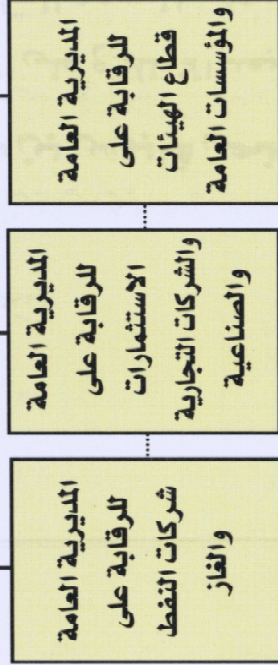 المديرية العامة
للرقابة على
قطاع الهيئات
والمؤسسات العامة
المديرية العامة
للرقابة على
الاستثمارات
والشركات التجارية
والصناعية
المديرية العامة
للرقابة على
شركات النفط
والغاز